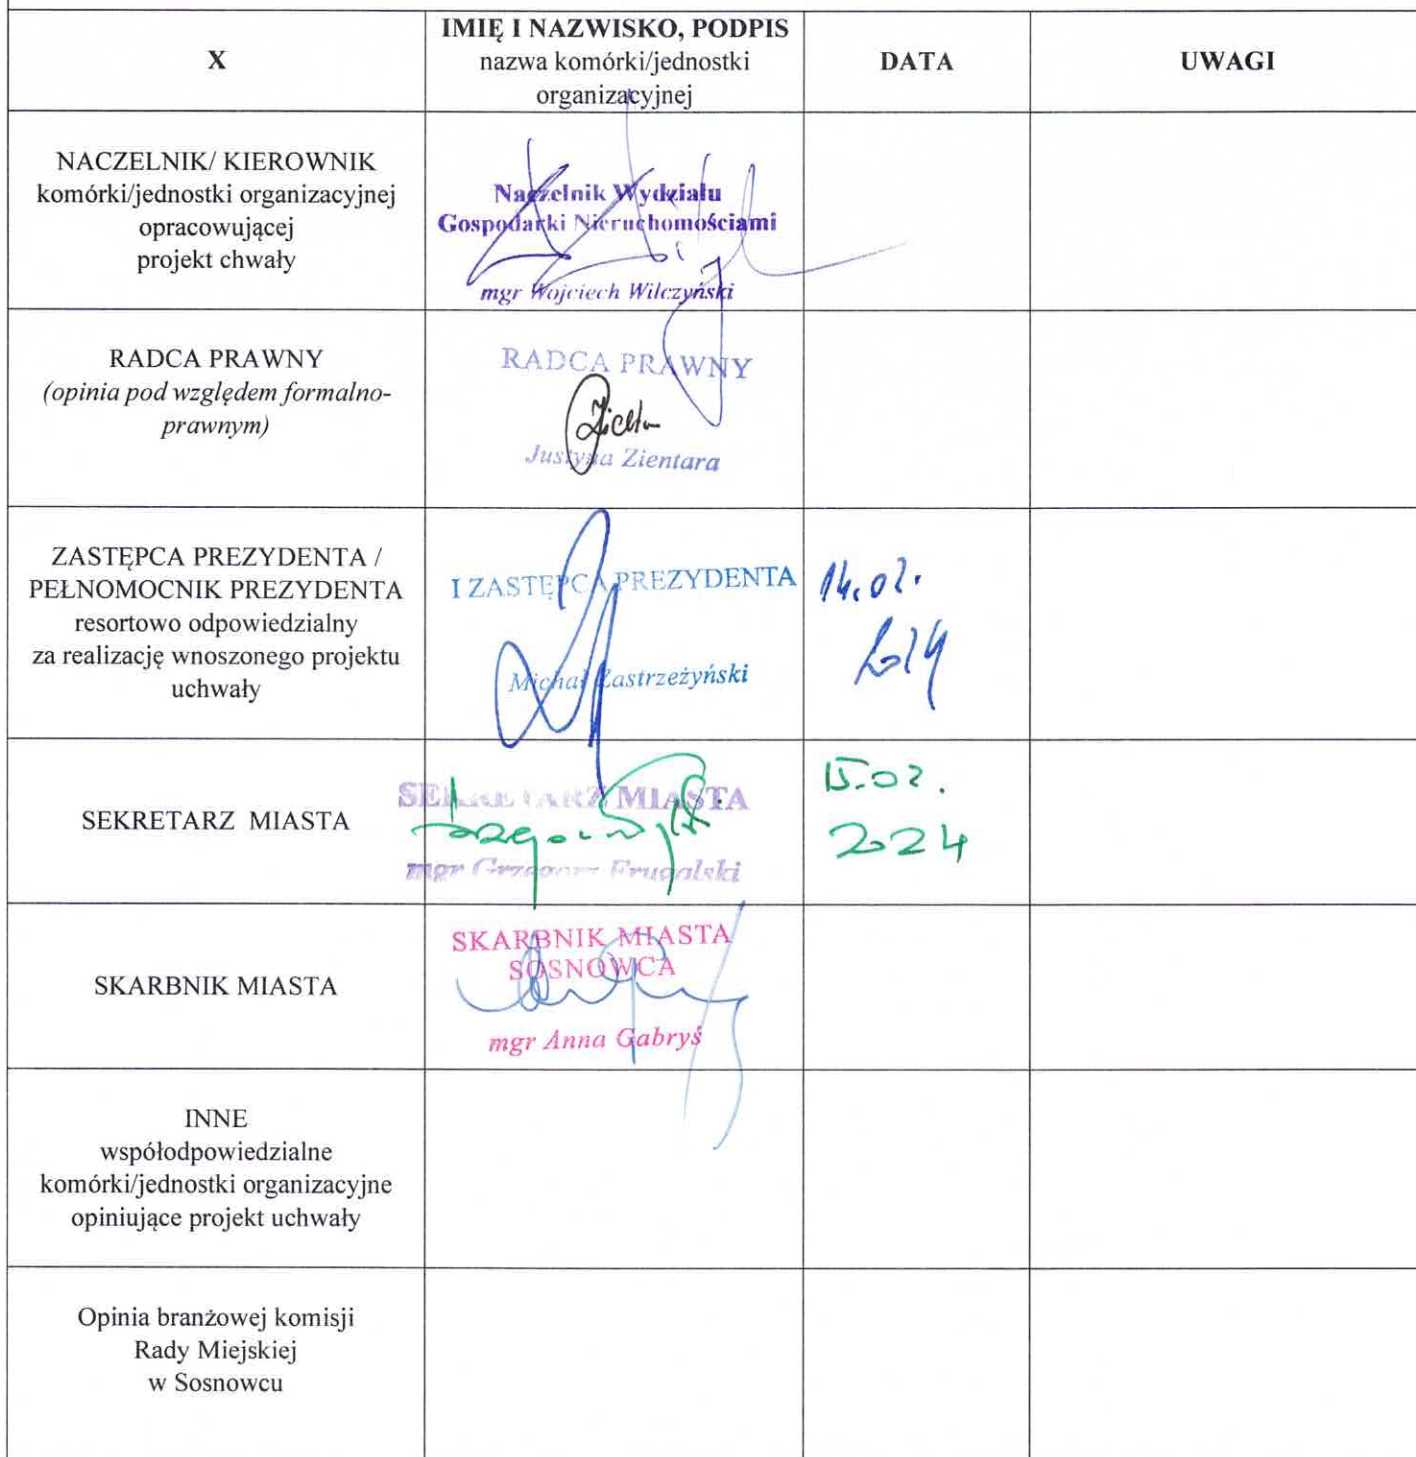 X
IMIĘ I NAZWISKO, PODPIS
nazwa komórki/jednostki
organizacyjnej
DATA
UWAGI
NACZELNIK/ KIEROWNIK
komórki/jednostki organizacyjnej
opracowującej
projekt chwały
Naczelnik Wydziału
Gospodarki Nieruchomościami
mgr Wojciech Wilczyński
RADCA PRAWNY
(opinia pod względem formalno-
prawnym)
RADCA PRAWNY
Justyna Zientara
ZASTĘPCA PREZYDENTA /
PEŁNOMOCNIK PREZYDENTA
resortowo odpowiedzialny
za realizację wnoszonego projektu
uchwały
I ZASTĘPCA PREZYDENTA
Michał Zastrzeżyński
14.02.
2024
SEKRETARZ MIASTA
SEKRETARZ MIASTA
mgr Grzegorz Frugalski
15.02.
2024
SKARBNIK MIASTA
SKARBNIK MIASTA
SOSNOWCA
mgr Anna Gabryś
INNE
współodpowiedzialne
komórki/jednostki organizacyjne
opiniujące projekt uchwały
Opinia branżowej komisji
Rady Miejskiej
w Sosnowcu